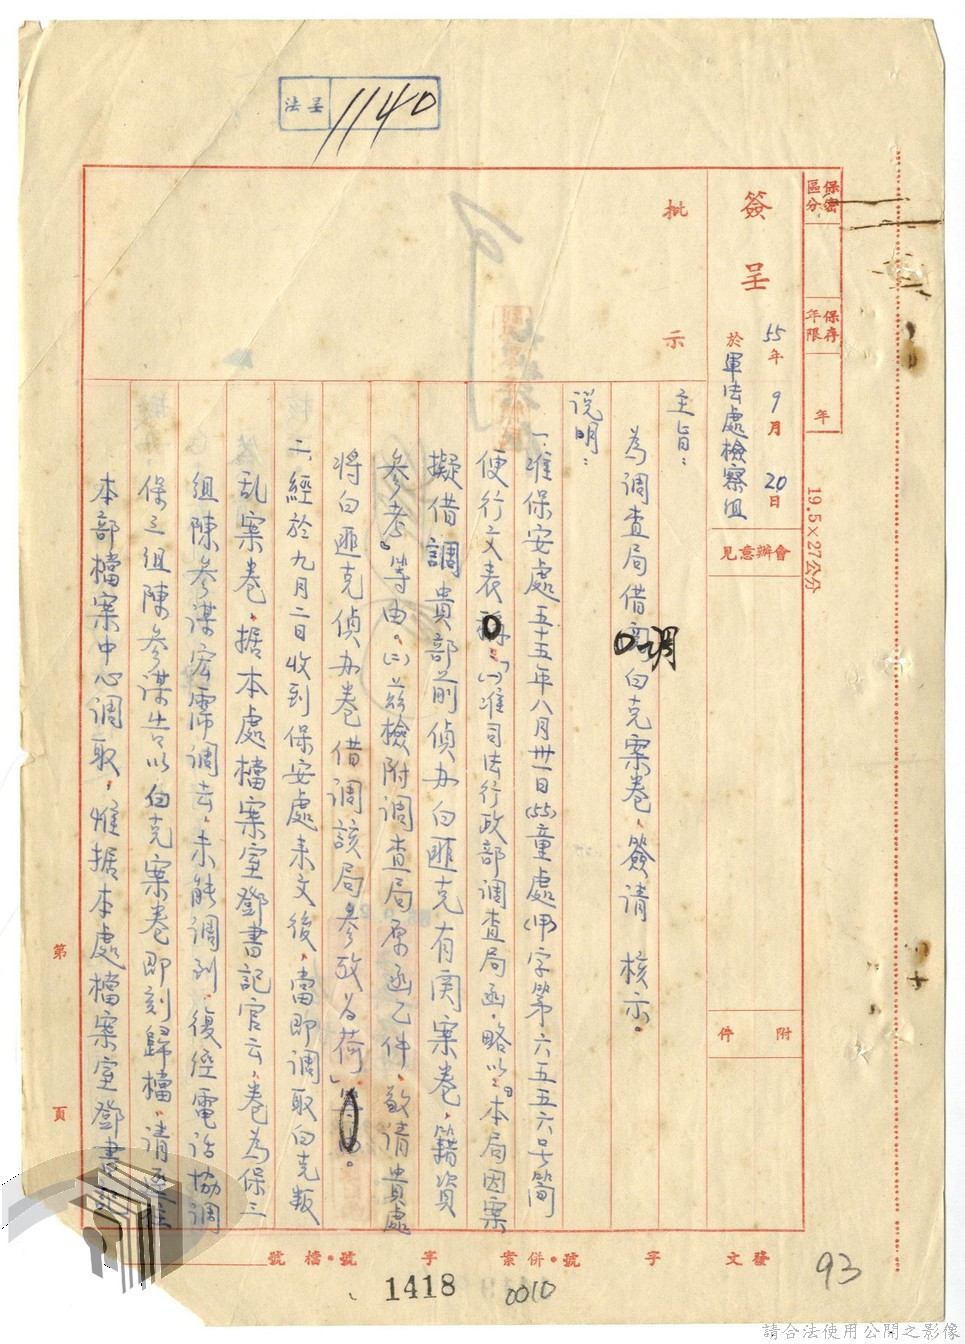 法呈
1140
保密區分
保存年限
年
19.5×27公分
簽呈
55年9月20日
於軍法處檢察組
會辦意見
附件
批示
主旨：
為調查局借調白克案卷，簽請 核示。
說明：
一、准保安處五十五年八月卅一日(55)童處(甲)字第六五五六号簡
便行文表：「(一)准司法行政部調查局函，略以：『本局因案
擬借調貴部前偵办白匪克有関案卷，籍資
參考』等由。(二)茲檢附調查局原函乙件，敬請貴處
將白匪克偵办卷借調該局參攷為荷」。
二、經於九月二日收到保安處来文後，當即調取白克叛
乱案卷，据本處檔案室鄧書記官云，卷為保三
組陳參謀宏霈調去，未能調到，復經電話協調
保三組陳參謀告以，白克案卷即刻歸檔，請逕往
本部檔案中心調取，惟据本處檔案室鄧書記
第 頁
發文 字 號・併案 字 號・檔號
1418
0010
93
請合法使用公開之影像